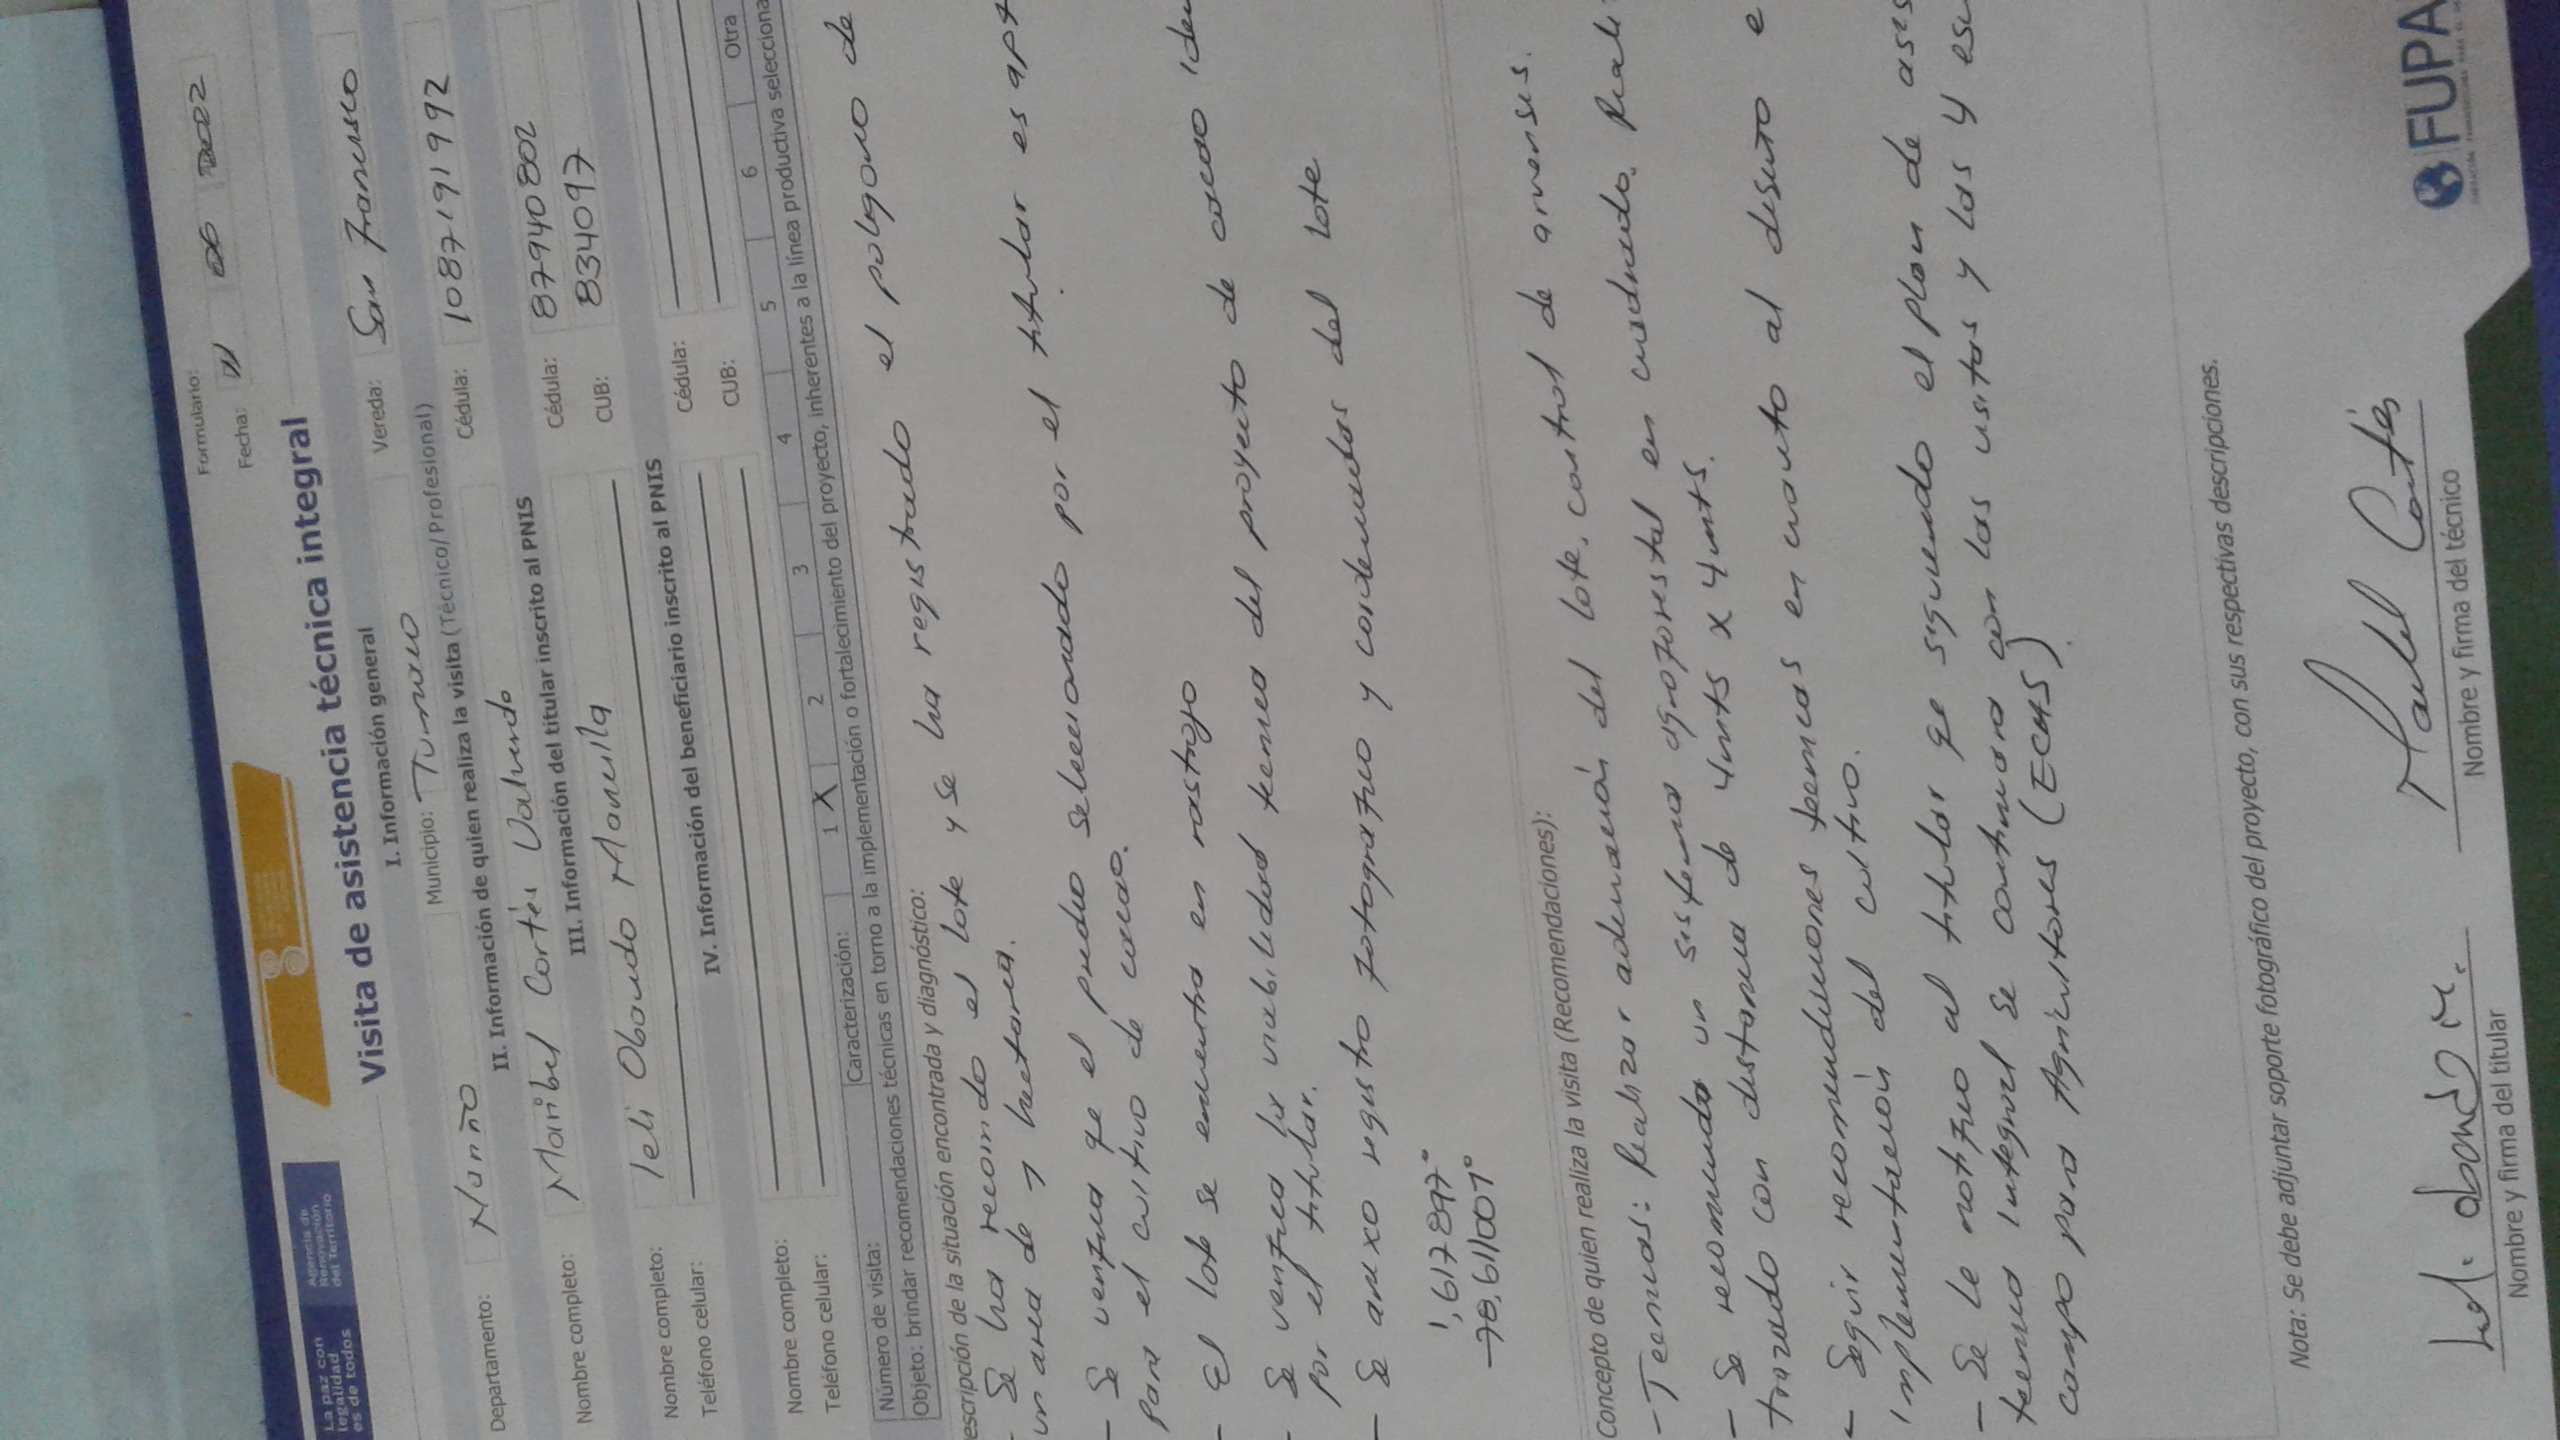 La paz con
legalidad
es de todos
Agencia de
Renovación
del Territorio
Formulario:
Fecha: 11 06 2022
Visita de asistencia técnica integral
I. Información general
Departamento: Nariño Municipio: Tumaco Vereda: San Francisco
II. Información de quien realiza la visita (Técnico/Profesional)
Nombre completo: Maribel Cortés Valverde Cédula: 1087191992
III. Información del titular inscrito al PNIS
Nombre completo: Leli Obando Manulla Cédula: 87940802
Teléfono celular: CUB: 8334097
IV. Información del beneficiario inscrito al PNIS
Nombre completo: Cédula:
Teléfono celular: CUB:
Número de visita: Caracterización: 1 X 2 3 4 5 6 Otra
Objeto: brindar recomendaciones técnicas en torno a la implementación o fortalecimiento del proyecto, inherentes a la línea productiva selecciona
escripción de la situación encontrada y diagnóstico:
- Se ha recorrido el lote y se ha registrado el poligono de
un area de 1 hectarea.
- Se verifica qe el predio seleccionado por el titular es apt
para el cultivo de cacao.
- El lote se encuentra en rastrojo
- Se verifica la viabilidad tecnica del proyecto de cacao iden
por el titular.
- Se anexo registro fotografico y cordenadas del lote
1,617897°
-78,611007°
Concepto de quien realiza la visita (Recomendaciones):
- Tecnicas: Realizar adecuación del lote, control de arvenses.
- Se recomienda un sistema agroforestal en cuadrado. Reali
trazado con distancia de 4mts x 4mts.
- Seguir recomendaciones tecnicas en cuanto al diseño e
implementación del cultivo.
- Se le notifico al titular qe siguiendo el plan de ases
tecnica integral se continuara con las visitas y las 4 esc
campo para Agricultores (ECAS).
Nota: Se debe adjuntar soporte fotográfico del proyecto, con sus respectivas descripciones.
Leli obando M. Maribel Cortés
Nombre y firma del titular Nombre y firma del técnico
FUPA